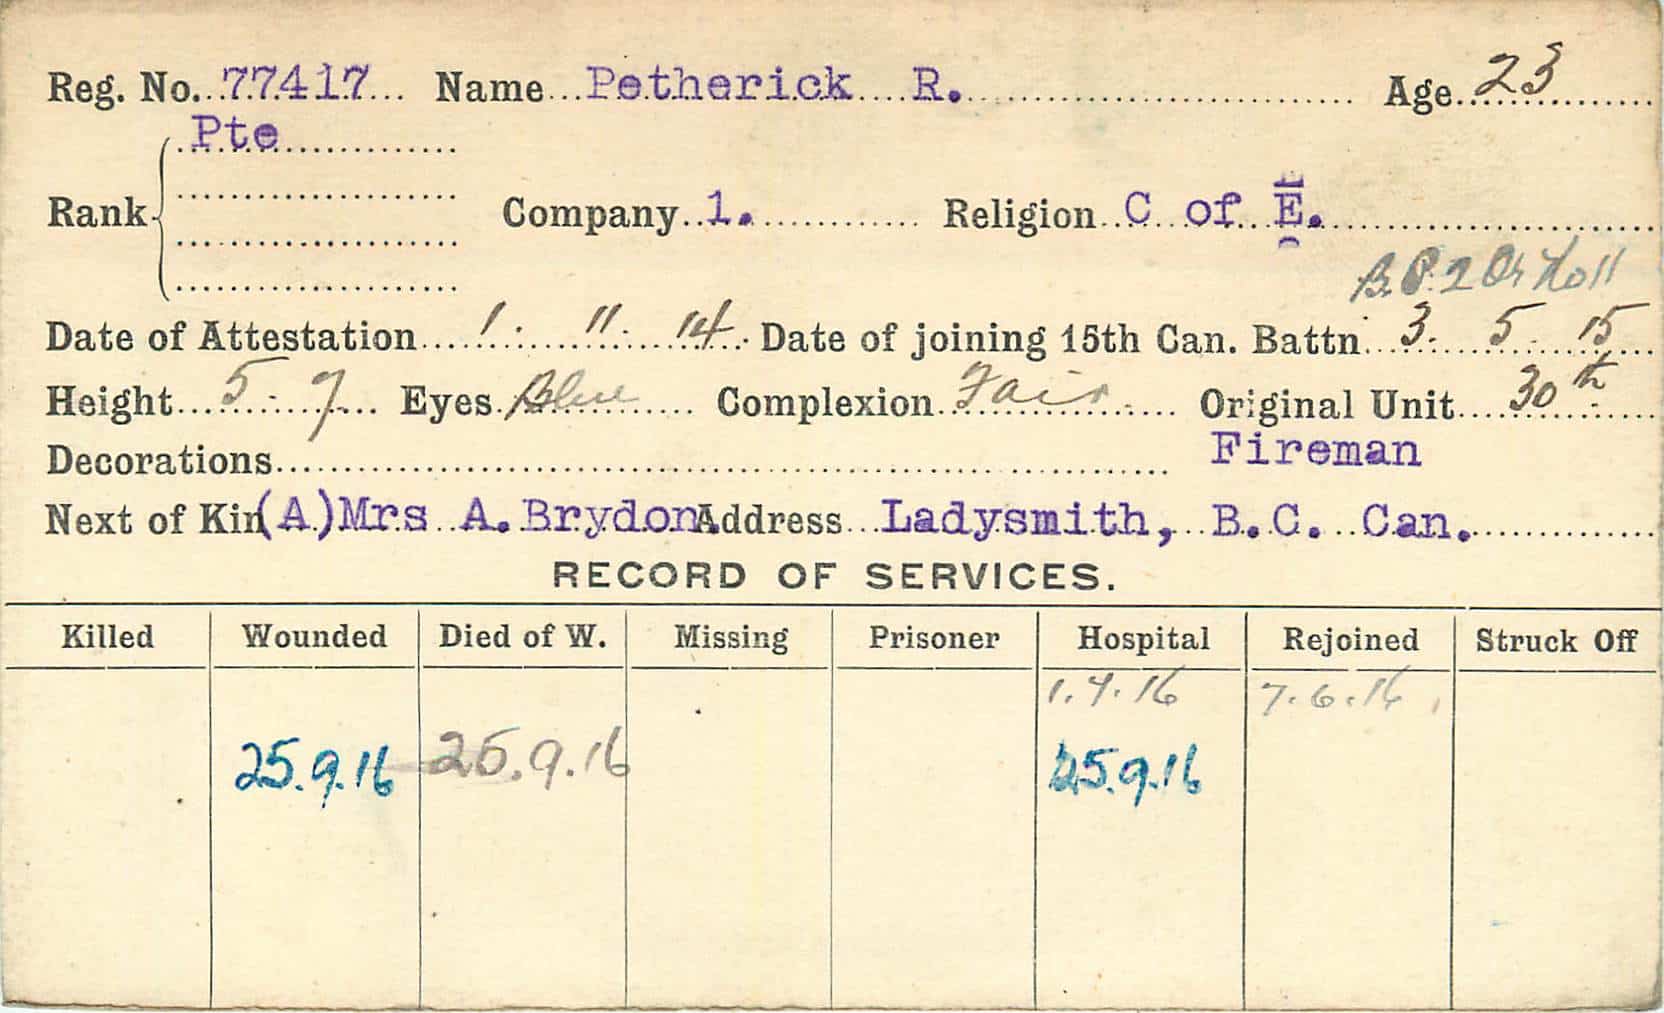 Reg. No. 77417 Name Petherick R. Age 23
Pte
Rank Company 1. Religion C of E.
B.P. 2
Date of Attestation 1. 11. 14 Date of joining 15th Can. Battn. 3. 5. 15
Height 5. 7 Eyes Blue Complexion Fair Original Unit 30th
Decorations Fireman
Next of Kin (A) Mrs A. Brydon Address Ladysmith, B.C. Can.
RECORD OF SERVICES.
Killed Wounded Died of W. Missing Prisoner Hospital Rejoined Struck Off
7.6.16
25.9.16 25.9.16